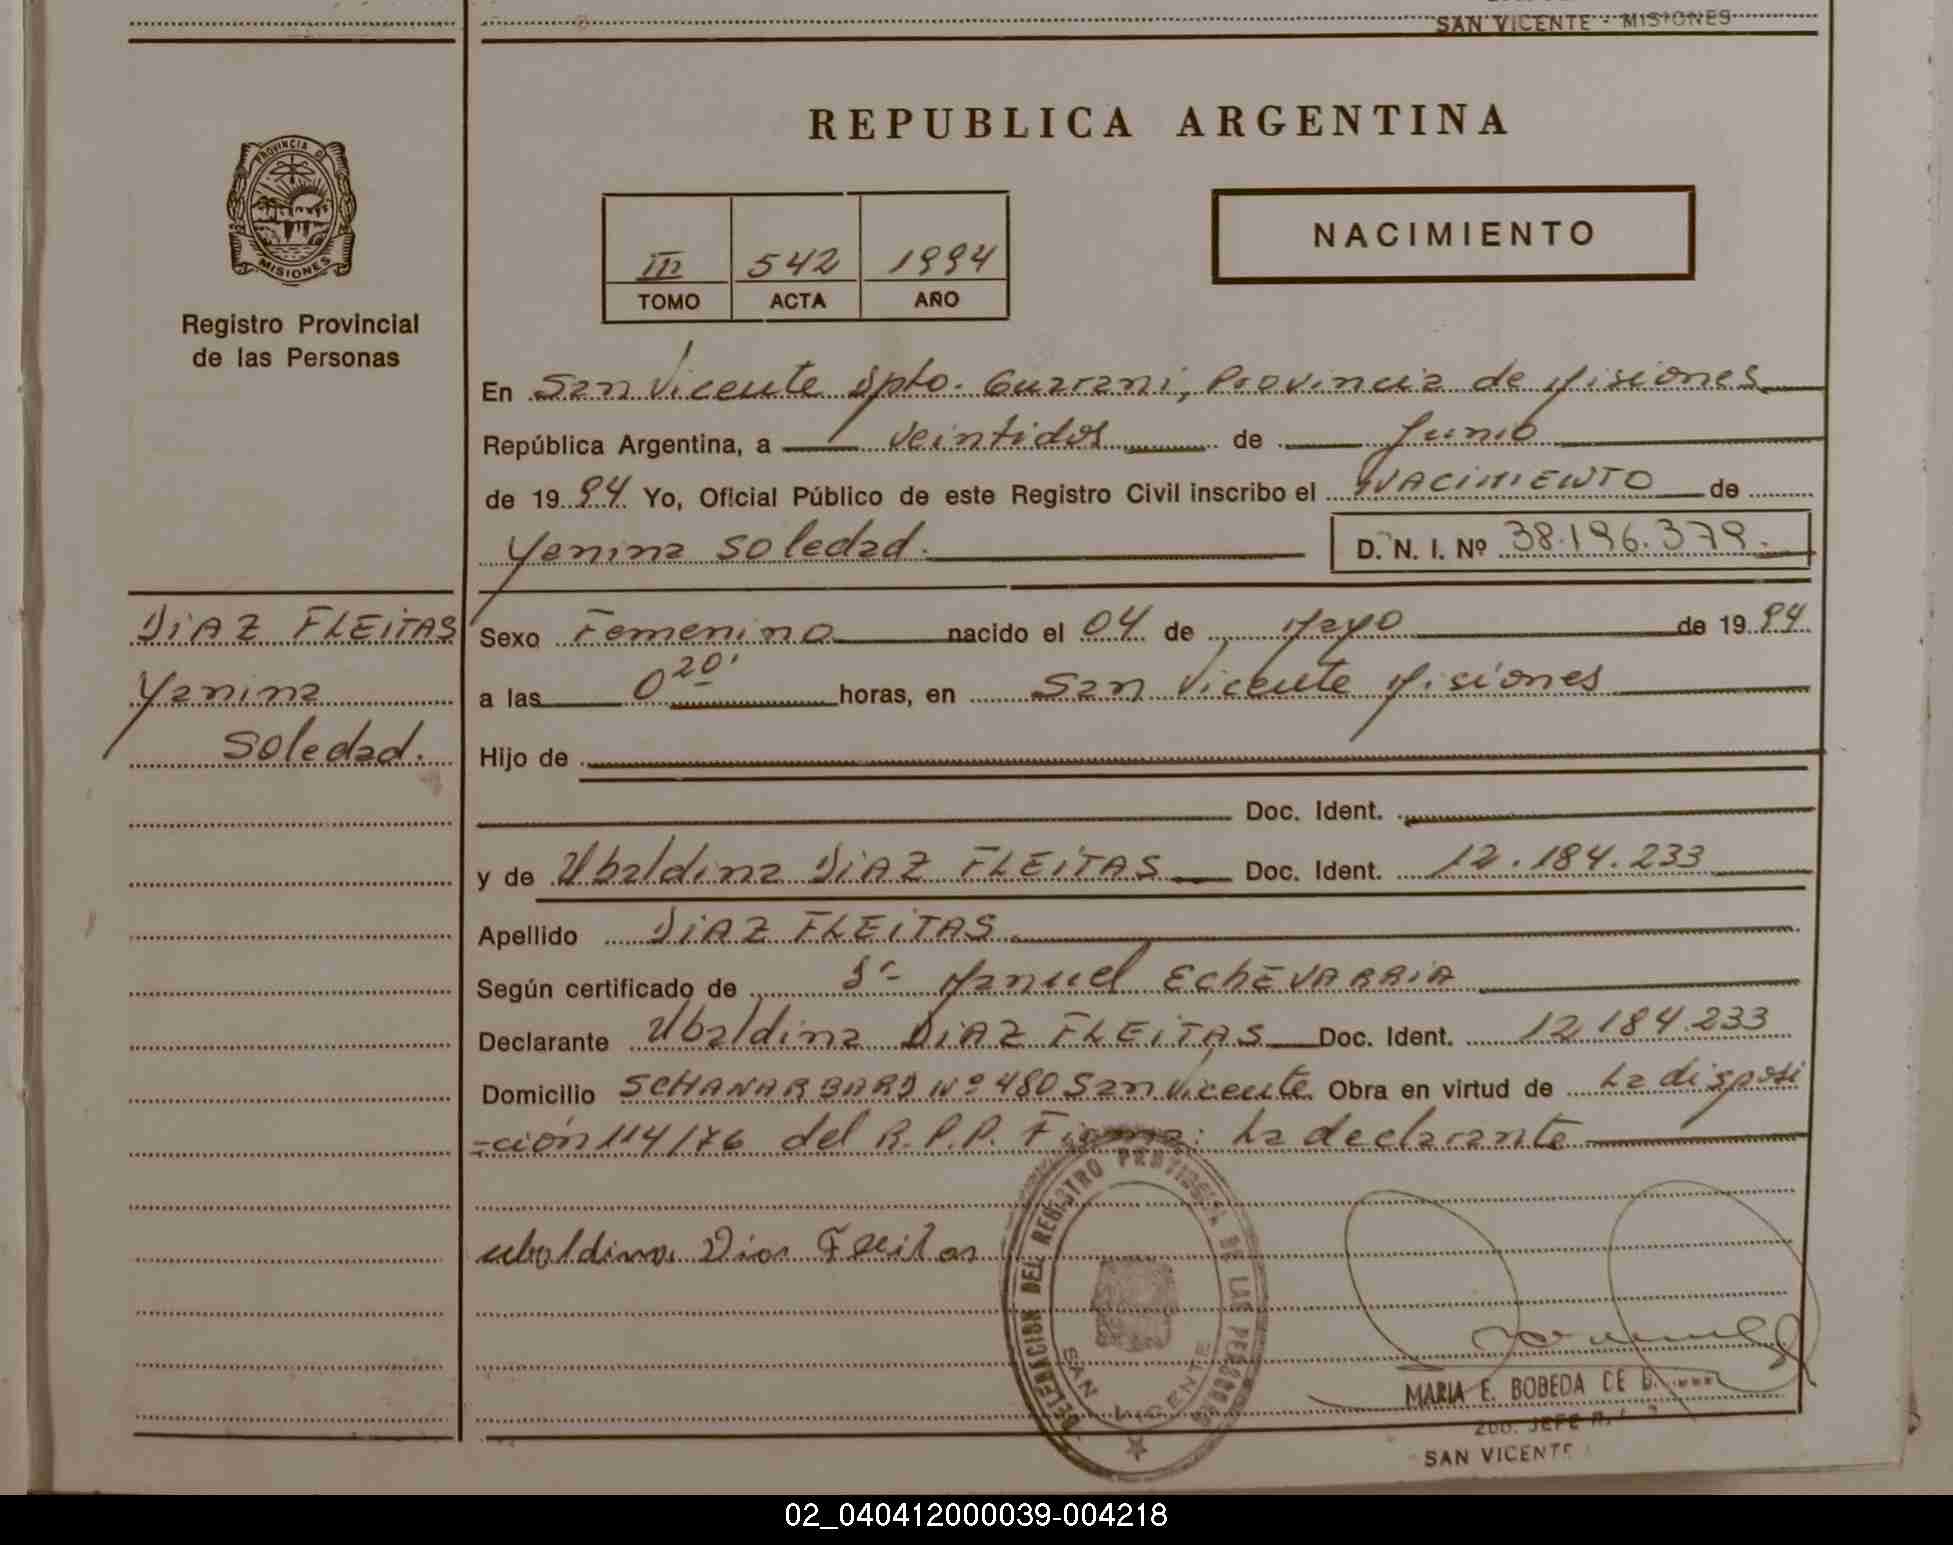 SAN VICENTE - MISIONES
REPUBLICA ARGENTINA
PROVINCIA D
MISIONES
Registro Provincial
de las Personas
III 542 1994
TOMO ACTA AÑO
NACIMIENTO
En San Vicente Dpto. Guarani, Provincia de Misiones
República Argentina, a veintidos de Junio
de 1994 Yo, Oficial Público de este Registro Civil inscribo el NACIMIENTO de
Yanina Soledad. D. N. I. Nº 38.196.379.
DIAZ FLEITAS
Yanina
Soledad.
Sexo Femenino nacido el 04 de Mayo de 1994
a las 0 20' horas, en San Vicente Misiones
Hijo de
Doc. Ident.
y de Ubaldina DIAZ FLEITAS Doc. Ident. 12.184.233
Apellido DIAZ FLEITAS
Según certificado de Dr Manuel ECHEVARRIA
Declarante Ubaldina DIAZ FLEITAS Doc. Ident. 12.184.233
Domicilio Nº 480 San Vicente Obra en virtud de La disposi
-ción 114/76 del R.P.P. Firma: La declarante
ubaldina Dias Fleitas
DELEGACION DEL REGISTRO PROVINCIAL DE LAS PERSONAS
SAN VICENTE
MARIA E. BOBEDA DE
2DO. JEFE
SAN VICENTE
02_040412000039-004218